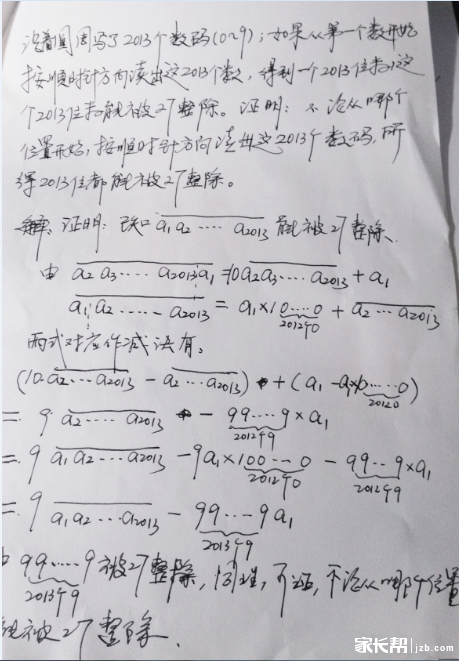 沿着圆周写了2013个数码(0~9);如果从第一个数开始
按顺时针方向读出这2013个数,得到一个2013位数,这
个2013位数能被27整除。证明:不论从哪个
位置开始,按顺时针方向读出这2013个数码,所
得2013位都能被27整除。
解、证明:已知 a₁a₂……a₂₀₁₃ 能被27整除、
由 a₂a₃……a₂₀₁₃a₁=10a₂a₃……a₂₀₁₃+a₁
a₁a₂……a₂₀₁₃=a₁×10…0+a₂…a₂₀₁₃
2012个0
两式对应作减法有,
(10·a₂…a₂₀₁₃-a₂…a₂₀₁₃)+(a₁-a₁×10……0)
2012个0
=9·a₂……a₂₀₁₃-99……9×a₁
2012个9
=9 a₁a₂…a₂₀₁₃-9a₁×100…0-99…9×a₁
2012个0 2012个9
=9 a₁a₂…a₂₀₁₃-99…9a₁
2013个9
99……9被27整除,同理,可证,不论从哪个位置
2013个9
能被27整除.
家长帮 jzb.com